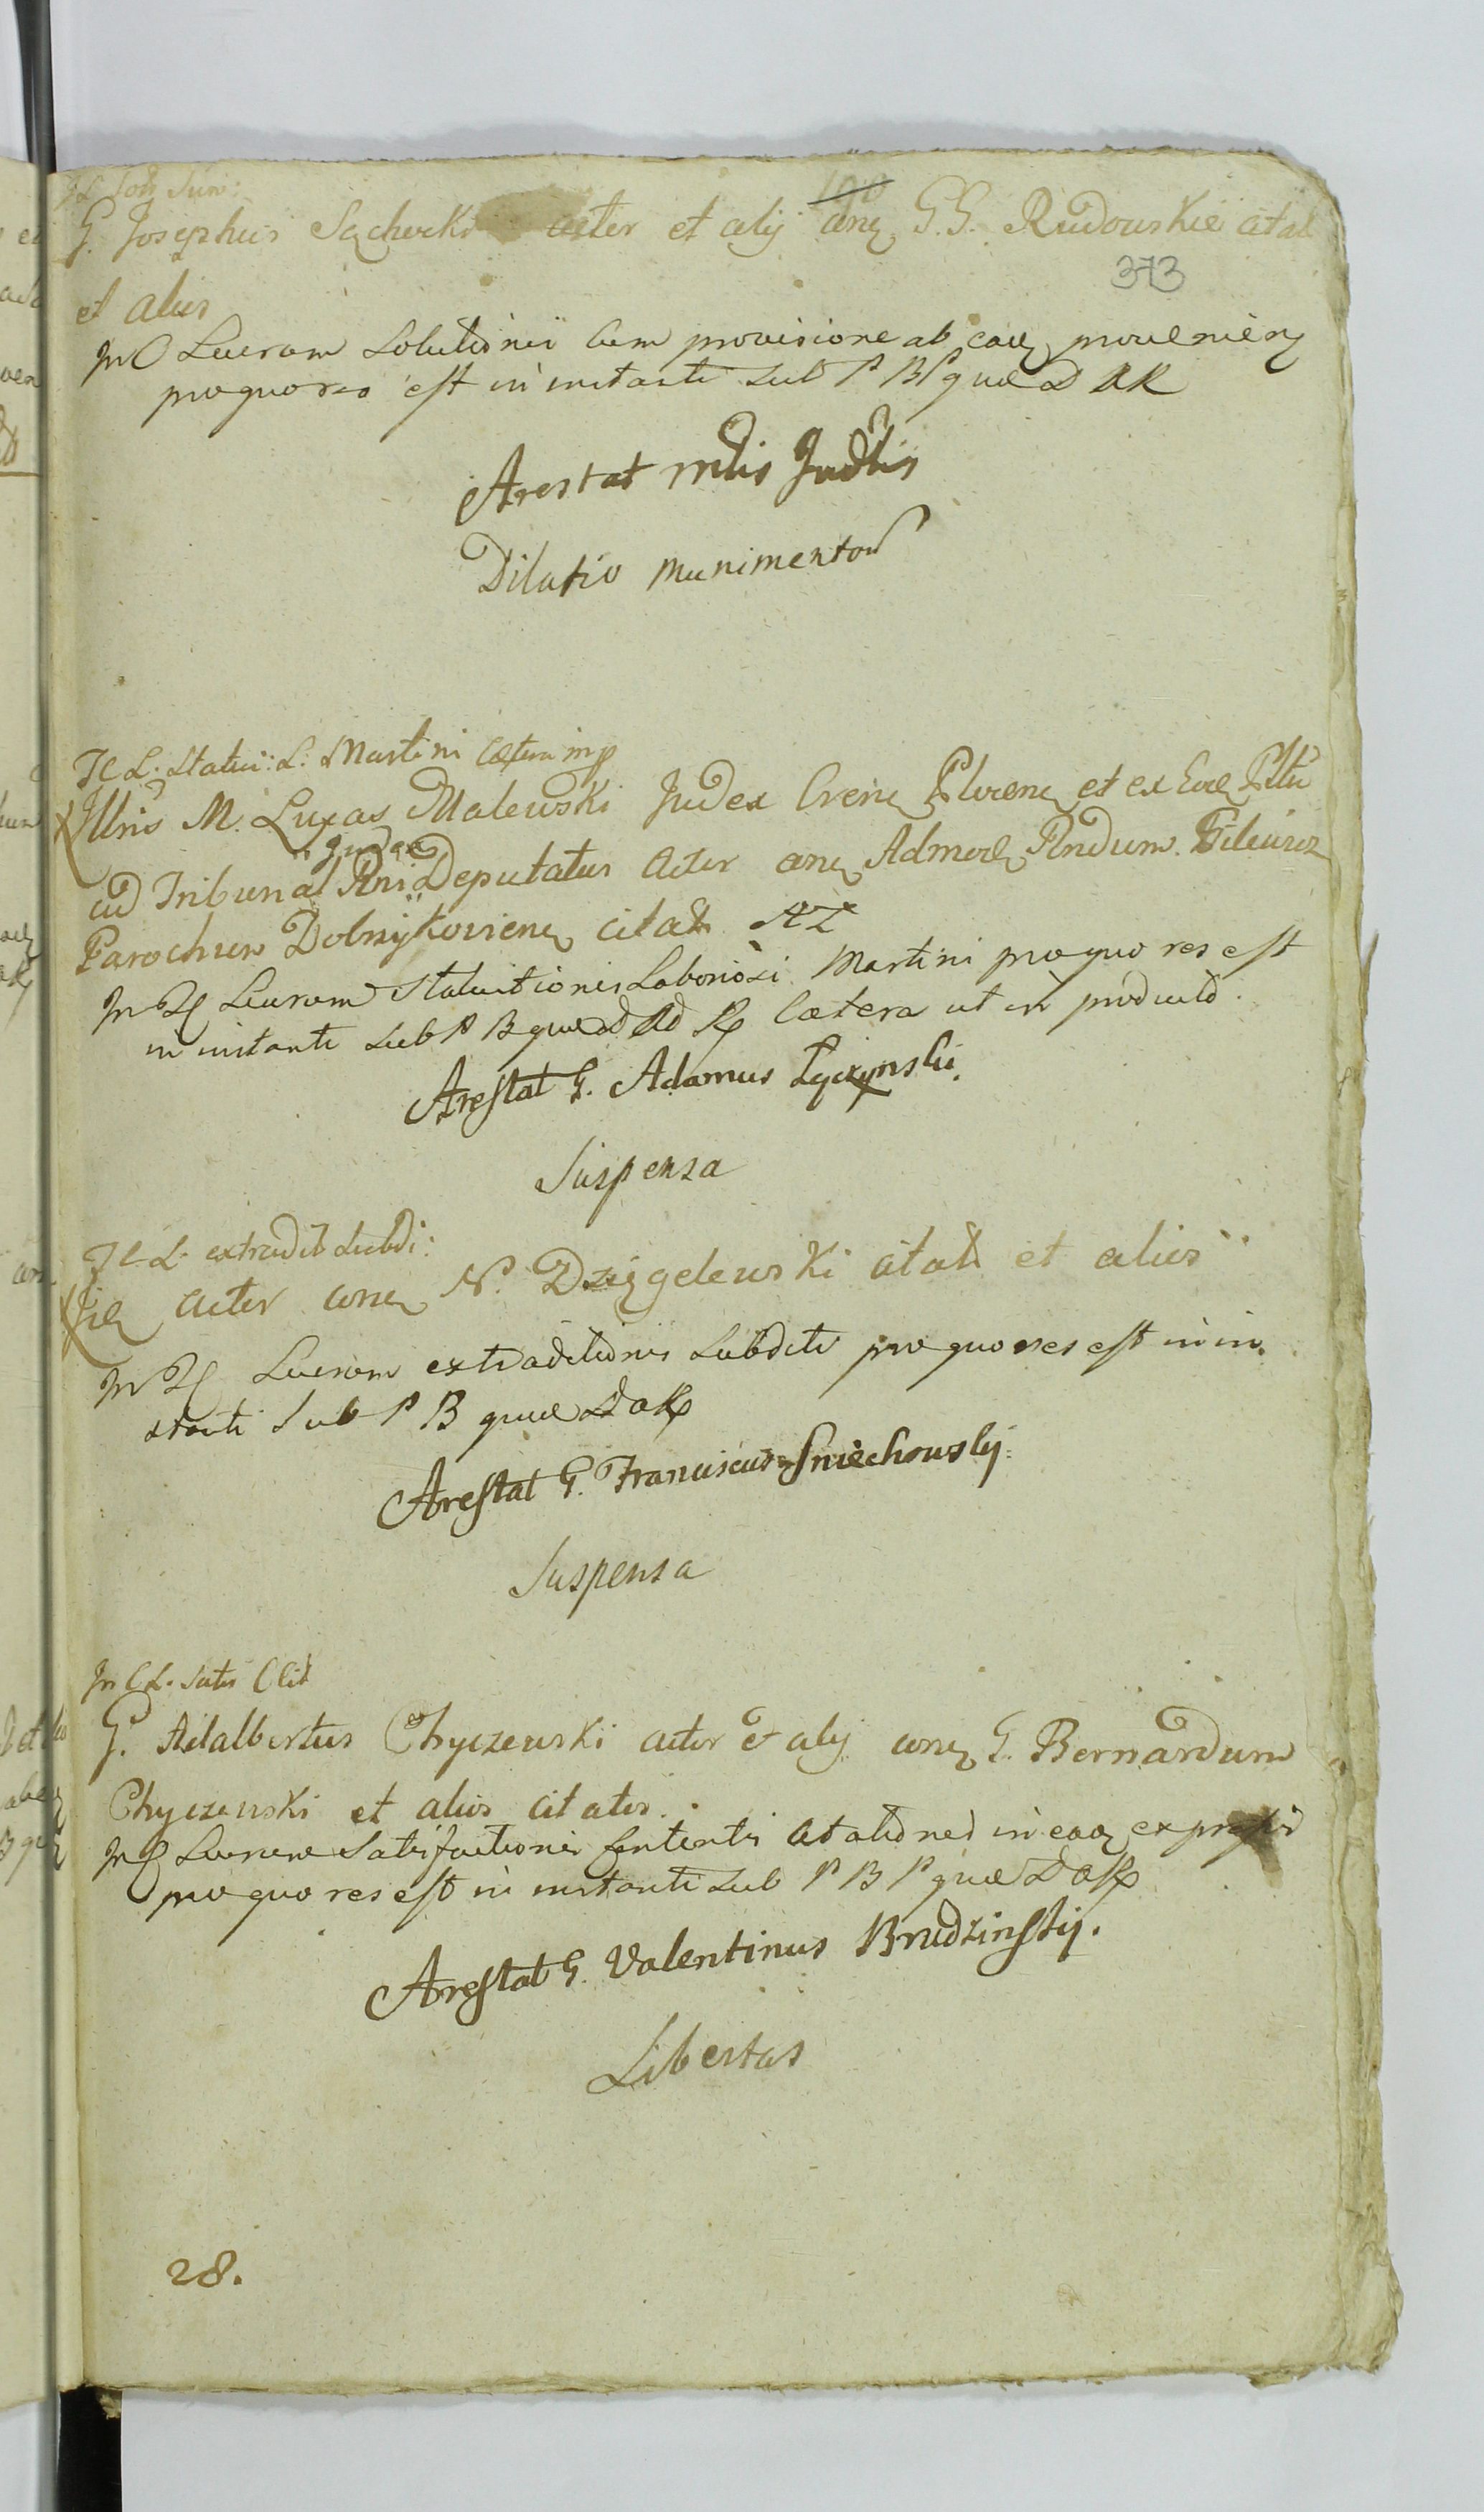 100
G. Josephus Sąchocki acter et alij cone G.G. Rudowskie citat
373
et alios
In C Lucrum Solutionis Cum provisione ab eaq provenien
pro quo res est in instanti Sub P B P quæ D A R
Arestat mtis Judlis
Dilatio Munimentor
JC L: Statui: L: Martini Cætera
Illris M. Lucas Malewski Judex Crene Plocene et ex
Judex
ad Tribunal Rni Deputatus Acter cone Admod Rndum
Parochum citat
In Lucrum Statuitionis Laboriosi Martini pro quo res est
in instanti Sub P B quæ Cætera ut in
Arestat G. Adamus Łączynski
Suspensa
JC L. extradit Subdi:
acter cone N. Dzięgelewski citat et alios
In Lucrum extraditionis Subditi pro quo res est in in
stanti Sub P B quæ D
Arestat G. Franciscus Sniechowskij
Suspensa
In C L. Satis Cit
G. Adalbertus Chyczewski acter et alij cone G. Bernardum
Chyczewski et alios citatos.
In Lucrum Satisfactionis Citationes in eaq
pro quo res est in instanti Sub P B P quæ D
Arestat G. Valentinus Brudzinskij.
Libertas
28.